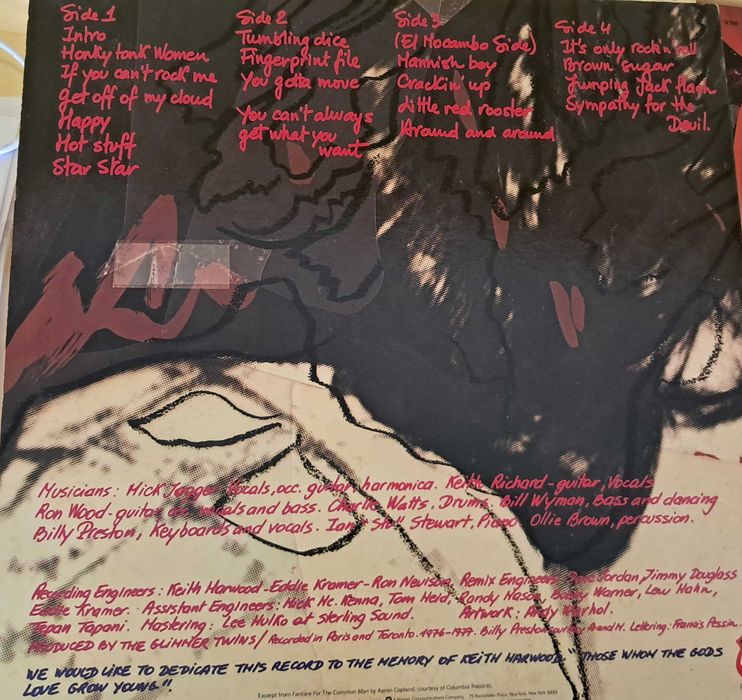 Side 1
Intro
Honky tonk Women
If you can't rock me
get off of my cloud
Happy
Hot stuff
Star Star
Side 2
Tumbling dice
Fingerprint file
You gotta move
You can't always
get what you
want
Side 3
(El Mocambo Side)
Mannish boy
Crackin' up
Little red rooster
Around and around
Side 4
It's only rock'n roll
Brown sugar
Jumping Jack flash
Sympathy for the
Devil.
Musicians: Mick Jagger, Vocals, acc. guitar, harmonica. Keith Richard-guitar, Vocals
Ron Wood-guitar vocals and bass. Charlie Watts. Drums. Bill Wyman, Bass and dancing
Billy Preston, Keyboards and vocals. Ian "Stu" Stewart, Piano Ollie Brown, percussion.
Recording Engineers: Keith Harwood-Eddie Kramer-Ron Nevison Remix Engineers Dave Jordan, Jimmy Douglass
Eddie Kramer. Assistant Engineers: Mick Mc.Kenna, Tom Heid, Randy Mason, Bobby Warner, Lew Hahn,
Tapani Tapani. Mastering: Lee Hulko at sterling Sound. Artwork: Andy Warhol.
PRODUCED BY THE GLIMMER TWINS / Recorded in Paris and Toronto. 1976-1977. Billy Preston courtesy A and M. Lettering: Francis Pessin.
WE WOULD LIKE TO DEDICATE THIS RECORD TO THE MEMORY OF KEITH HARWOOD. "THOSE WHOM THE GODS
LOVE GROW YOUNG".
Excerpt from Fanfare For The Common Man by Aaron Copland, courtesy of Columbia Records.
75 Rockefeller Plaza, New York, New York 10019